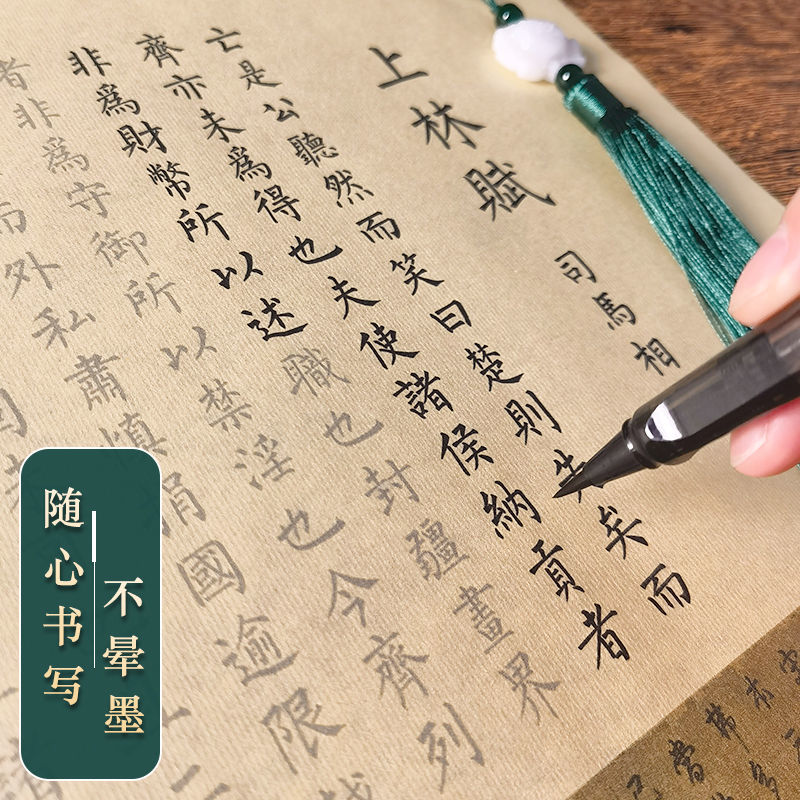 上林賦
司馬相
亡是公聽然而笑曰楚則失矣而
齊亦未為得也夫使諸侯納貢者
非為財幣所以述職也封疆畫界
者非為守御所以禁淫也今齊列
而外私肅慎捐國逾限
随心书写
不晕墨